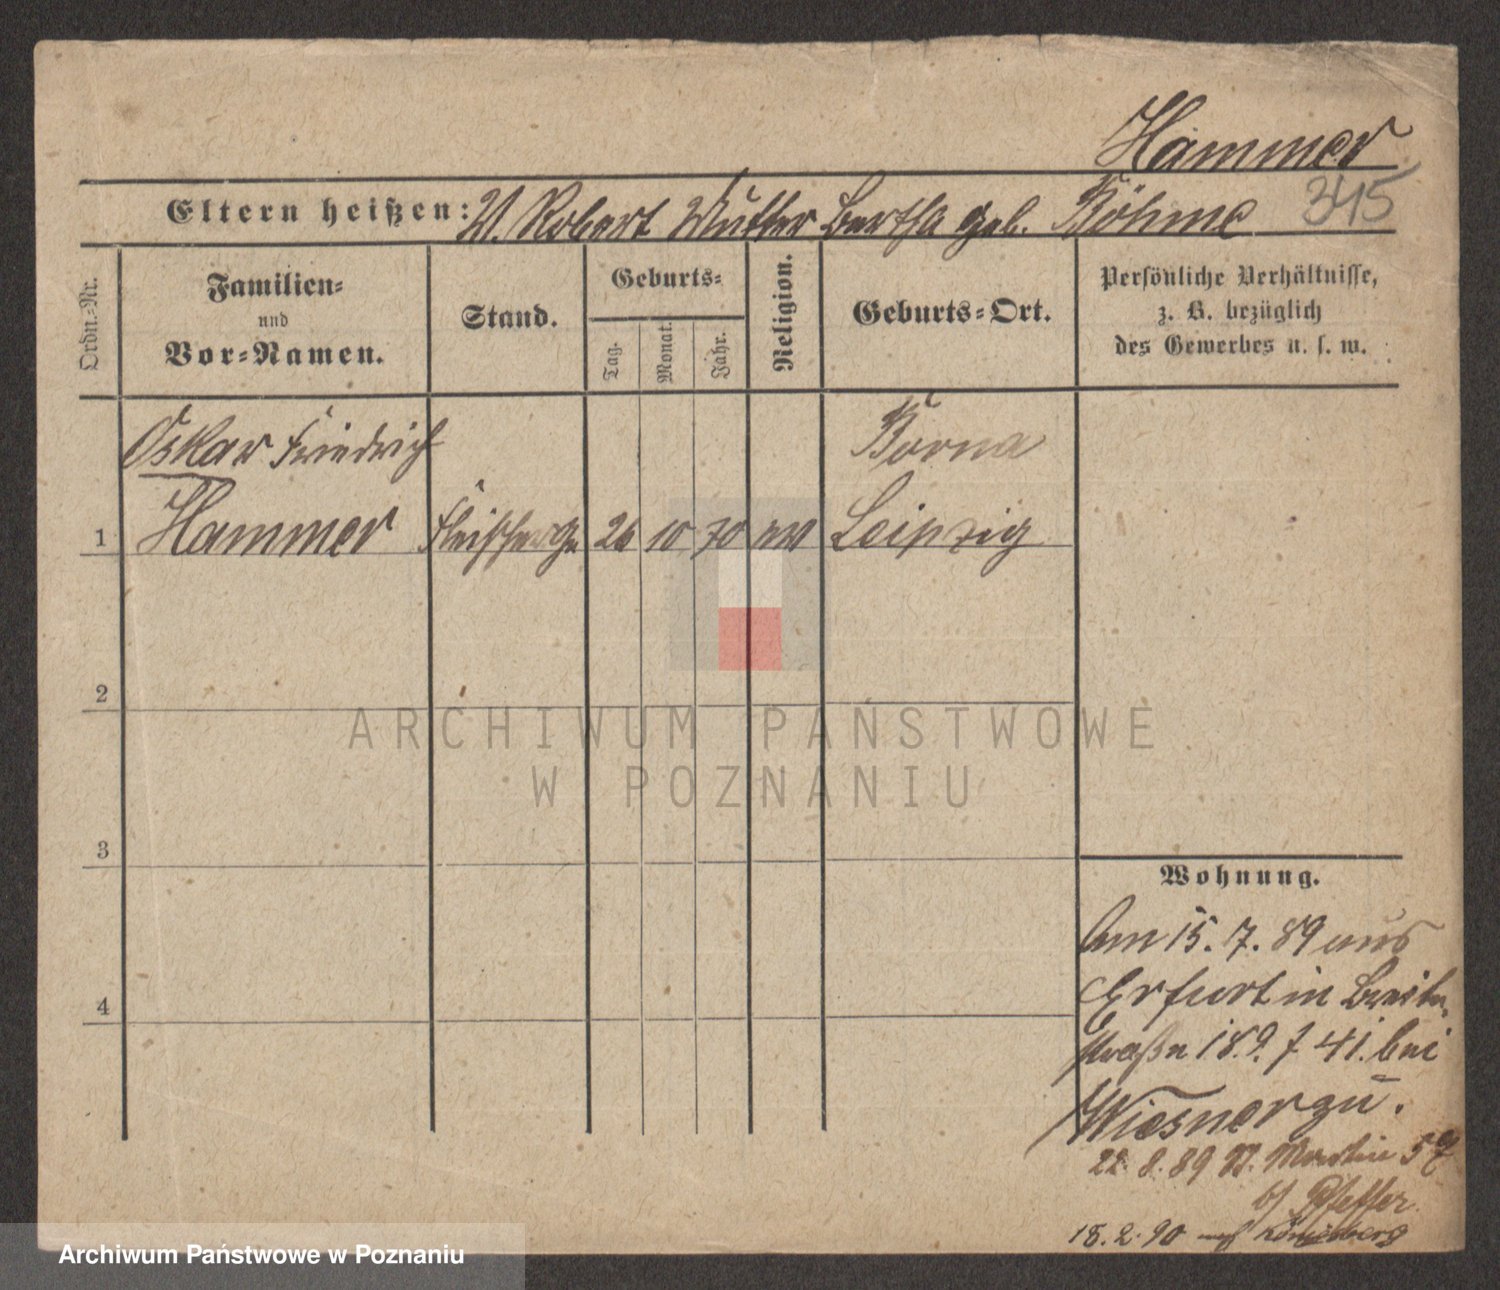 Hammer
345
Eltern heißen: V. Robert Mutter Bertha geb. Böhme
Ordn.-Nr.
Familien-
und
Vor-Namen.
Stand.
Geburts-
Tag.
Monat.
Jahr.
Religion.
Geburts-Ort.
Persönliche Verhältnisse,
z. B. bezüglich
des Gewerbes u. s. w.
Oskar Friedrich
Borna
1 Hammer Fleischerge 26 10 70 ev Leipzig
2
3
4
Wohnung.
Am 15. 7. 89 aus
Erfurt in Breite-
straße 18. 7 41. bei
Wiesner zu.
22. 8. 89 St. Martin 57
b/ Pfeffer
18. 2. 90 nach Königsberg
ARCHIWUM PAŃSTWOWE
W POZNANIU
Archiwum Państwowe w Poznaniu